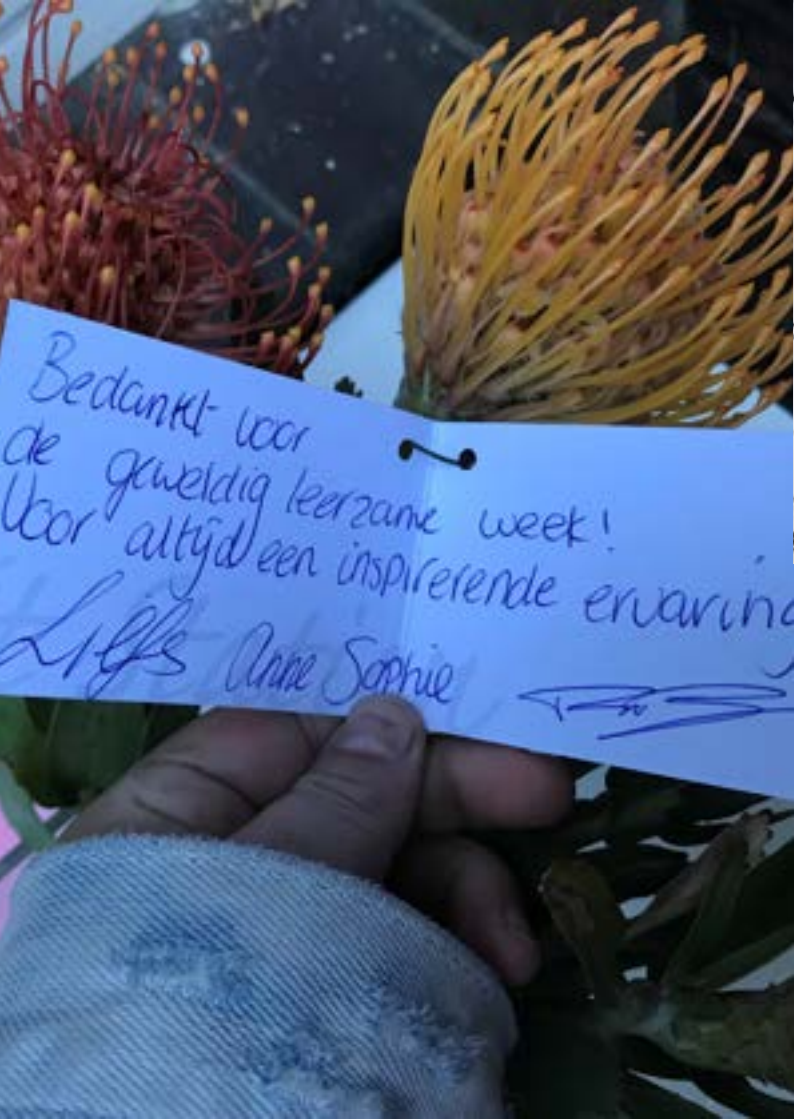 Bedankt voor
de geweldig leerzame week!
Voor altijd een inspirerende ervaring
Liefs Anne Sophie